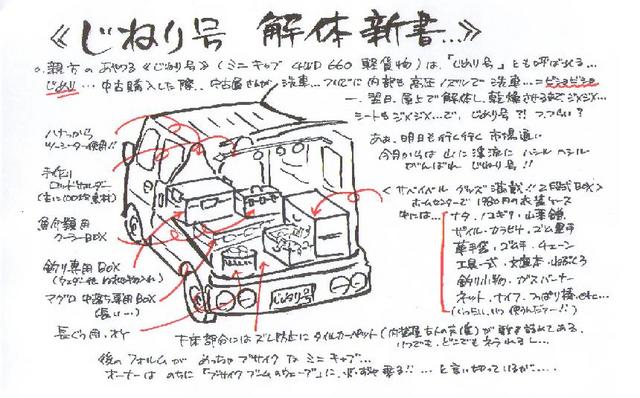 《じねり号 解体新書…》
○親方のあやつる《じねり号》(ミニキャブ 4WD 660 軽貨物)は、「じねり号」とも呼ばれる…
じねり…中古購入した際、中古屋さんが洗車…ついでに内部も高圧ノズルで洗車…=ビショビショ
翌日、屋上で解体し、乾燥させるまでジメジメ…
シートもジメジメ…で、じねり号?! つづらい?
ああ、明日も行く行く市場通い
今日からは山に渓流にハシルハシル
がんばれ じねり号!!
ハナっから
ツィーター使用!!
手作り
ロッドホルダー
魚介類用
クーラーBOX
釣り専用BOX
マグロ中落ち専用BOX
(長い…)
長ぐつ用
<サバイバル グッズ満載!! 2段式BOX>
ホームセンターで1980円の衣装ケース
中には…ナタ、ノコギリ、山菜鎌
ザイル、カラビナ、ゴム軍手
革手袋、ゴム手、チェーン
工具一式
釣り小物、ガスバーナー
ネット、ナイフ、つっぱり棒、etc…
(いったい、いつ使うんだァー!!)
じねり号
床部分にはズレ防止にタイルカーペット(内装屋さんの先輩)が敷き詰めてある
いつでも、どこでもそうれるし…
後のフォルムがめっちゃブサイクなミニキャブ…
オーナーはのちに「ブサイクブームのウェーブ」に、必ずや乗る!!…と言い切っているが…